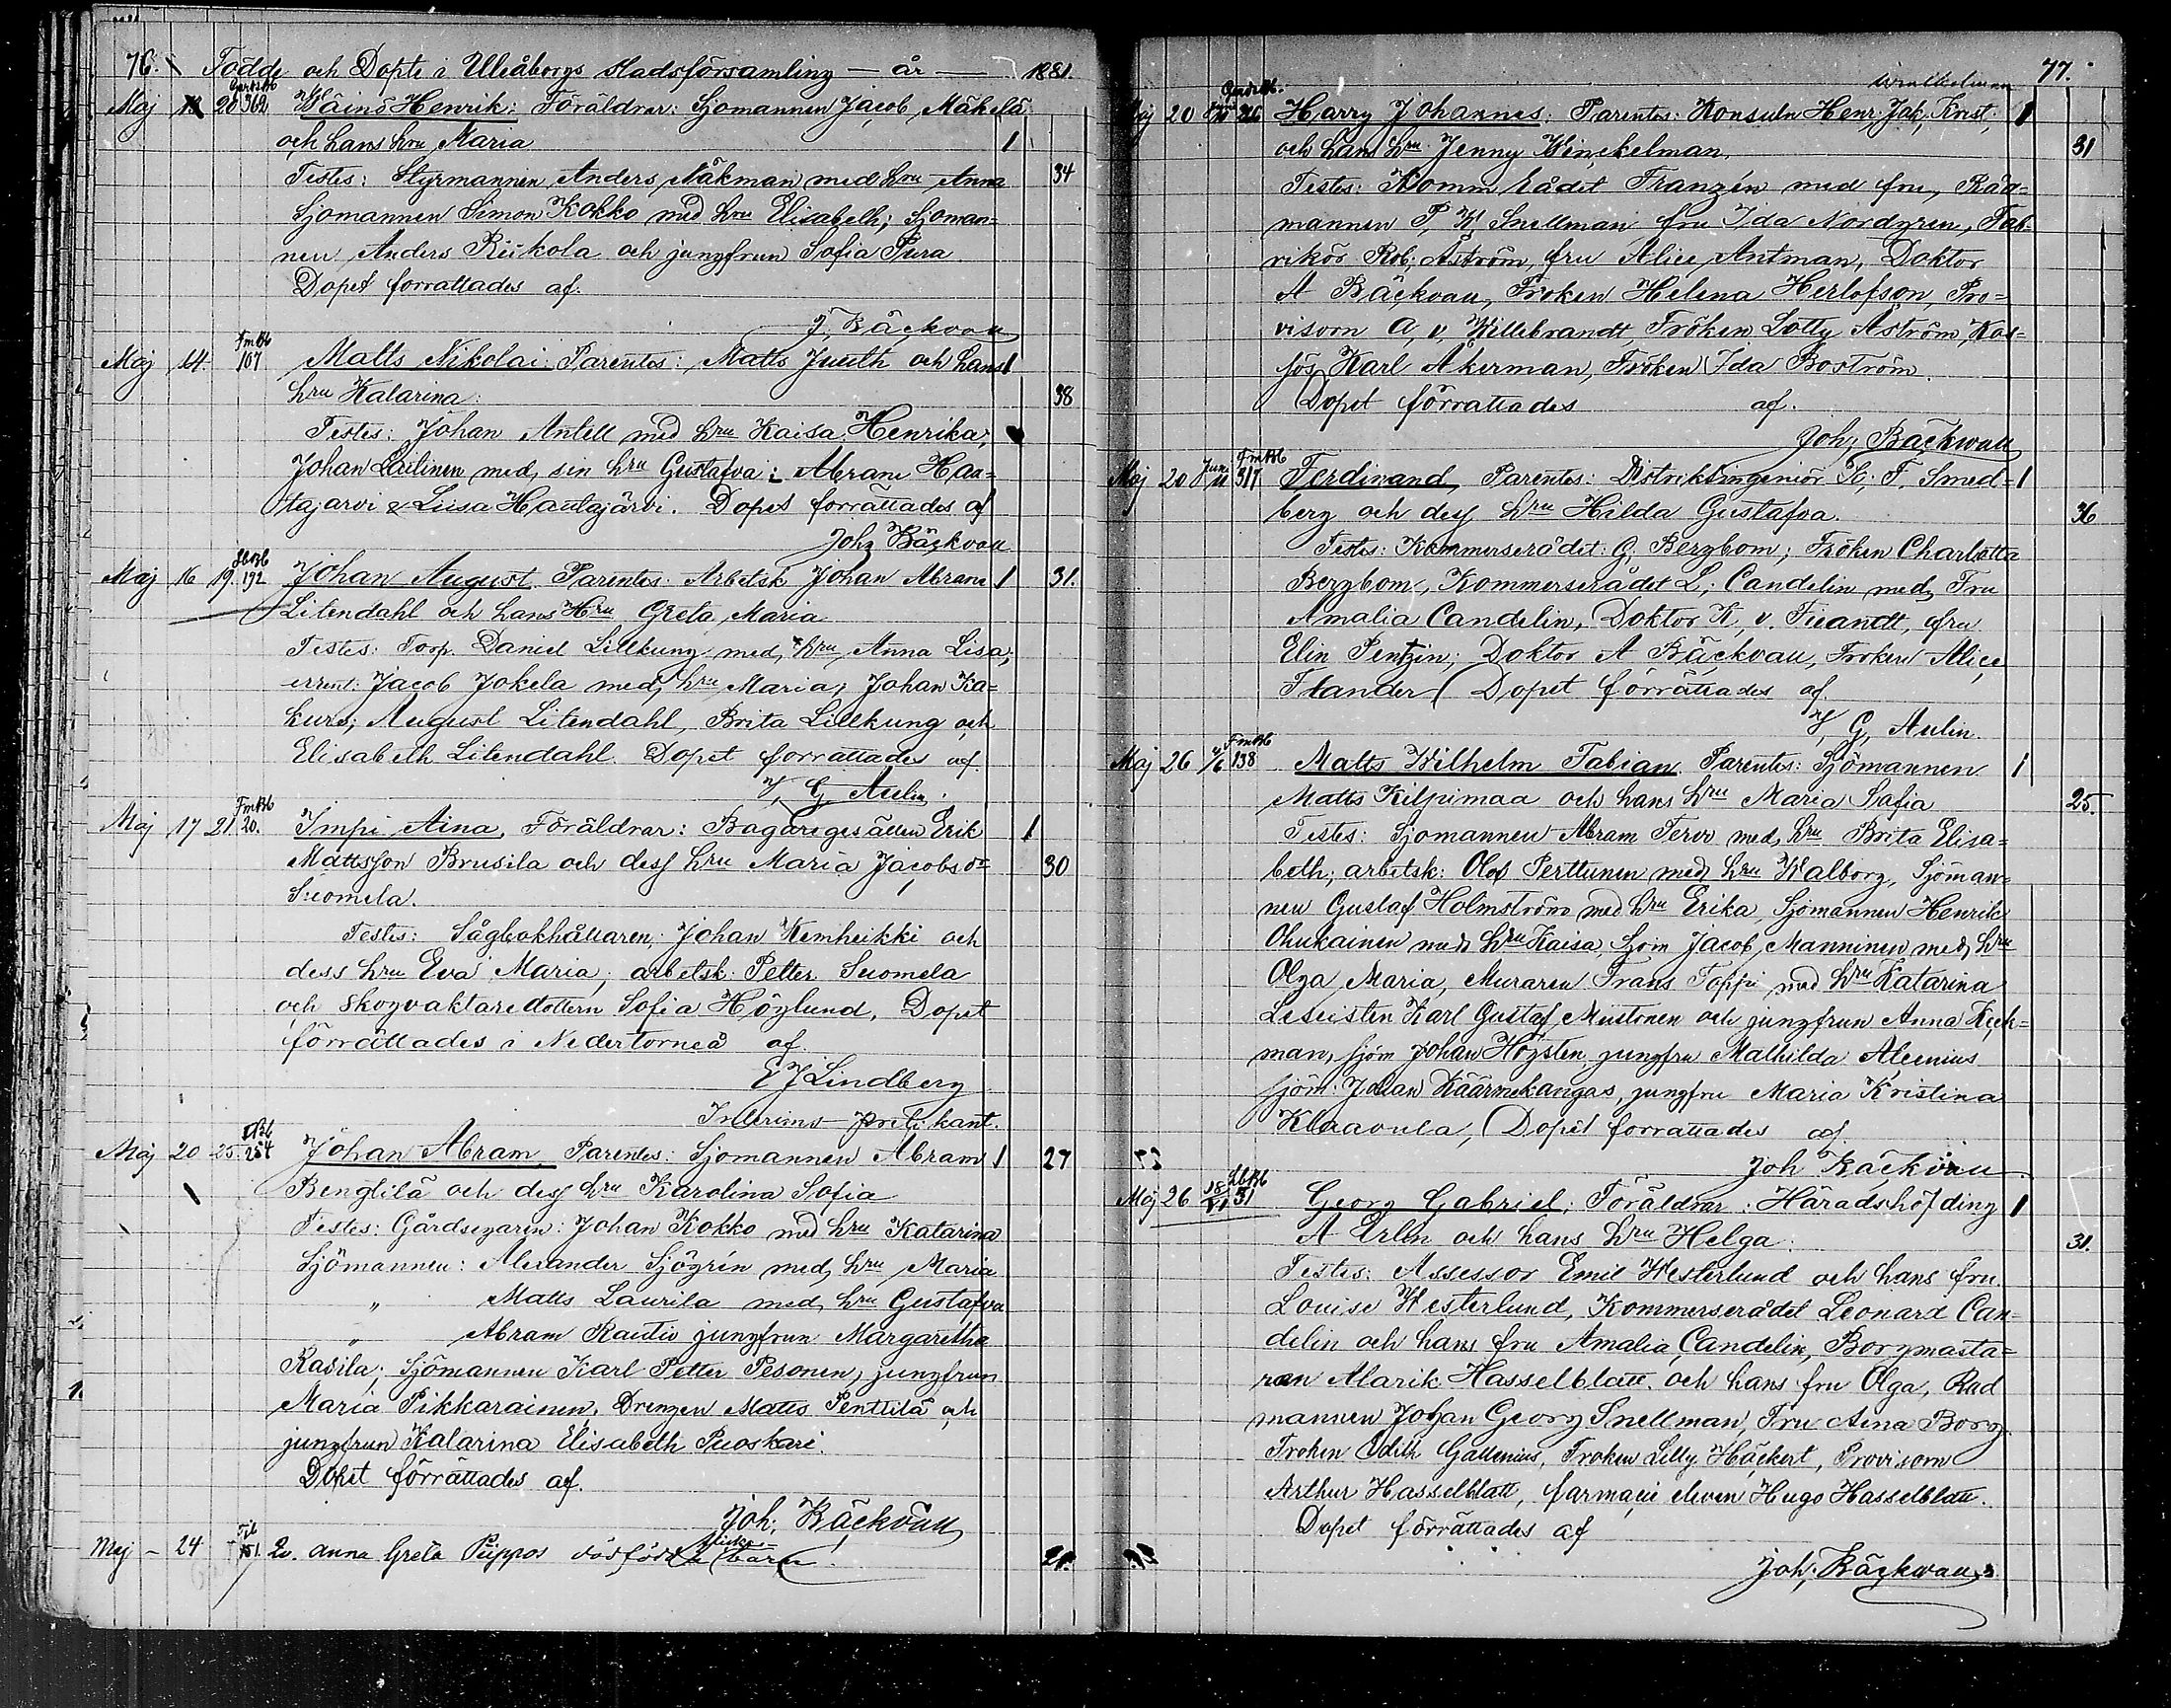 76. Födde och Döpte i Uleåborgs stadsförsamling — år — 1881.
Maj 20 362 Wäinö Henrik: Föräldrar: Sjomannen Jacob Mäkelä
och hans hru Maria 1
Testes: Styrmannen Anders Näkman med hru Anna 34
Sjomannen Simon Kokko med hru Elisabeth; Sjoman=
nen Anders Riikola och jungfrun Sofia Pura
Dopet forrattades af.
J. Bäckvall
Maj 14. FmBb 107 Matts Nikolai: Parentes: Matts Juuth och hans 1
hru Katarina: 38
Testes: Johan Antell med hru Kaisa Henrika;
Johan Laitinen med sin hru Gustafva; Abram Haa=
tajarvi & Liisa Hautajärvi. Dopet forrättades af
Joh; Bäckvall
Maj 16 19. 192 Johan August Parentes: Arbetsk Johan Abram 1 31.
Litendahl och hans Hru Greta Maria
Testes: Torp. Daniel Lillkung med hru Anna Lisa;
Jacob Jokela med hru Maria; Johan Ka=
kurs; August Litendahl, Brita Lillkung och
Elisabeth Litendahl. Dopet forrattades af
J, G, Aulin.
Maj 17 21 FmBb 20. Impi Aina, Föräldrar: Bagaregesällen Erik 1
Mattsson Brusila och dess hru Maria Jacobsdr 30
Suomela.
Testes: Sågbokhållaren; Johan Kemheikki och
dess hru Eva Maria; arbetsk: Petter Suomela
och skogvaktaredottern Sofia Höglund, Dopet
förrättades i Nedertorneå af
E J Lindberg
Interims predikant.
Maj 20 25. 254 Johan Abram. Parentes: Sjomannen Abram 1 27
Bengtilä och dess hru Karolina Sofia
Testes: Gårdsegaren: Johan Kokko med hru Katarina
Sjömannen: Alexander Sjögrén med hru Maria
" Matts Laurila med hru Gustafva
" Abram Rautio jungfrun Margaretha
Rasila; Sjömannen Karl Petter Pesonen, jungfrun
Maria Pikkarainen, Drengen Matts Penttilä och
jungfrun Katarina Elisabeth Puoskari.
Dopet förrättades af.
Joh; Bäckvall
Maj - 24 151. Qv. Anna Greta Piippos dödfödda flicke-barn.
77.
Winckelman
Maj 20 216 Harry Johannes: Parentes: Konsuln Henr. Jak. 1
och hans hru Jenny Winckelman. 31
Testes: Komm.rådet Franzén med fru, Råd=
mannen P, W, Snellman fru Ida Nordgren, Fab=
rikör Rob; Åström, fru Alice Antman, Doktor
A Bäckvall, Fröken Helena Herlofson, Pro=
visorn A, v, Hillebrandt, Fröken Lotty Åström, Kas=
sös Karl Åkerman, Fröken Ida Boström.
Dopet förrattades af.
Joh; Bäckvall
Maj 20 FmBb 317 Ferdinand, Parentes: Distriktingeniör K; F. Smed= 1
berg och dess hru Hilda Gustafva. 36
Testes: Kommerserådet: G; Bergbom; Fröken Charlotta
Bergbom, Kommerserådet L; Candelin med Fru
Amalia Candelin, Doktor K, v. Fieandt, fru
Elin Pentzin; Doktor A Bäckvall, Froken Alice
Tlander Dopet förrättades af.
J, G, Aulin
Maj 26 FmBb 138 Matts Wilhelm Fabian. Parentes: Sjömannen 1
Matts Kilpimaa och hans hru Maria Sofia 25.
Testes: Sjomannen Abram Tervo med hru Brita Elisa=
beth; arbetsk: Olof Perttunen med hru Walborg, Sjöman=
nen Gustaf Holmström med hru Erika, Sjömannen Henrik
Ohukainen med hru Kaisa, Sjom Jacob Manninen med hru
Olga Maria, Muraren Frans Toppi med hru Katarina
Karl Gustaf Miistonen och jungfrun Anna Keck=
man, sjöm Johan Högsten jungfru Mathilda Alcenius
sjöm. Johan Käärmekangas, jungfru Maria Kristina
Klaavula, Dopet forrattades af
Joh Bäckvall
Maj 26 18/VI 51 Georg Gabriel; Föräldrar: Häradshöfding 1
A Erlin och hans hru Helga: 31.
Testes: Assessor Emil Westerlund och hans fru
Louise Westerlund, Kommerserådet Leonard Can=
delin och hans fru Amalia Candelin, Borgmasta=
ren Alarik Hasselblatt. och hans fru Olga, Råd
mannen Johan Georg Snellman, Fru Aina Borg.
Froken Edith Gallenius, Froken Lilly Häckert, Provisorn
Arthur Hasselblatt, farmacie eleven Hugo Hasselblatt.
Dopet förrättades af
Joh; Bäckvall